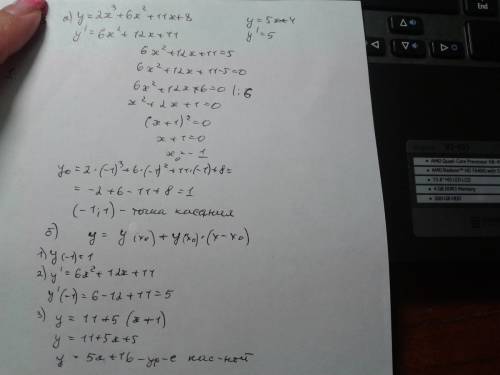 а) y = 2x³+6x²+11x+8     y = 5x+4
y' = 6x²+12x+11     y' = 5
6x²+12x+11=5
6x²+12x+11-5=0
6x²+12x+6=0 |:6
x²+2x+1=0
(x+1)²=0
x+1=0
x₀=-1
y₀=2·(-1)³+6·(-1)²+11·(-1)+8=
= -2+6-11+8=1
(-1;1) - точка касания
б) y = y(x₀) + y'(x₀)·(x-x₀)
1) y(-1)=1
2) y'=6x²+12x+11
y'(-1)=6-12+11=5
3) y = 11+5(x+1)
y = 11+5x+5
y = 5x+16 - ур-е кас-ной